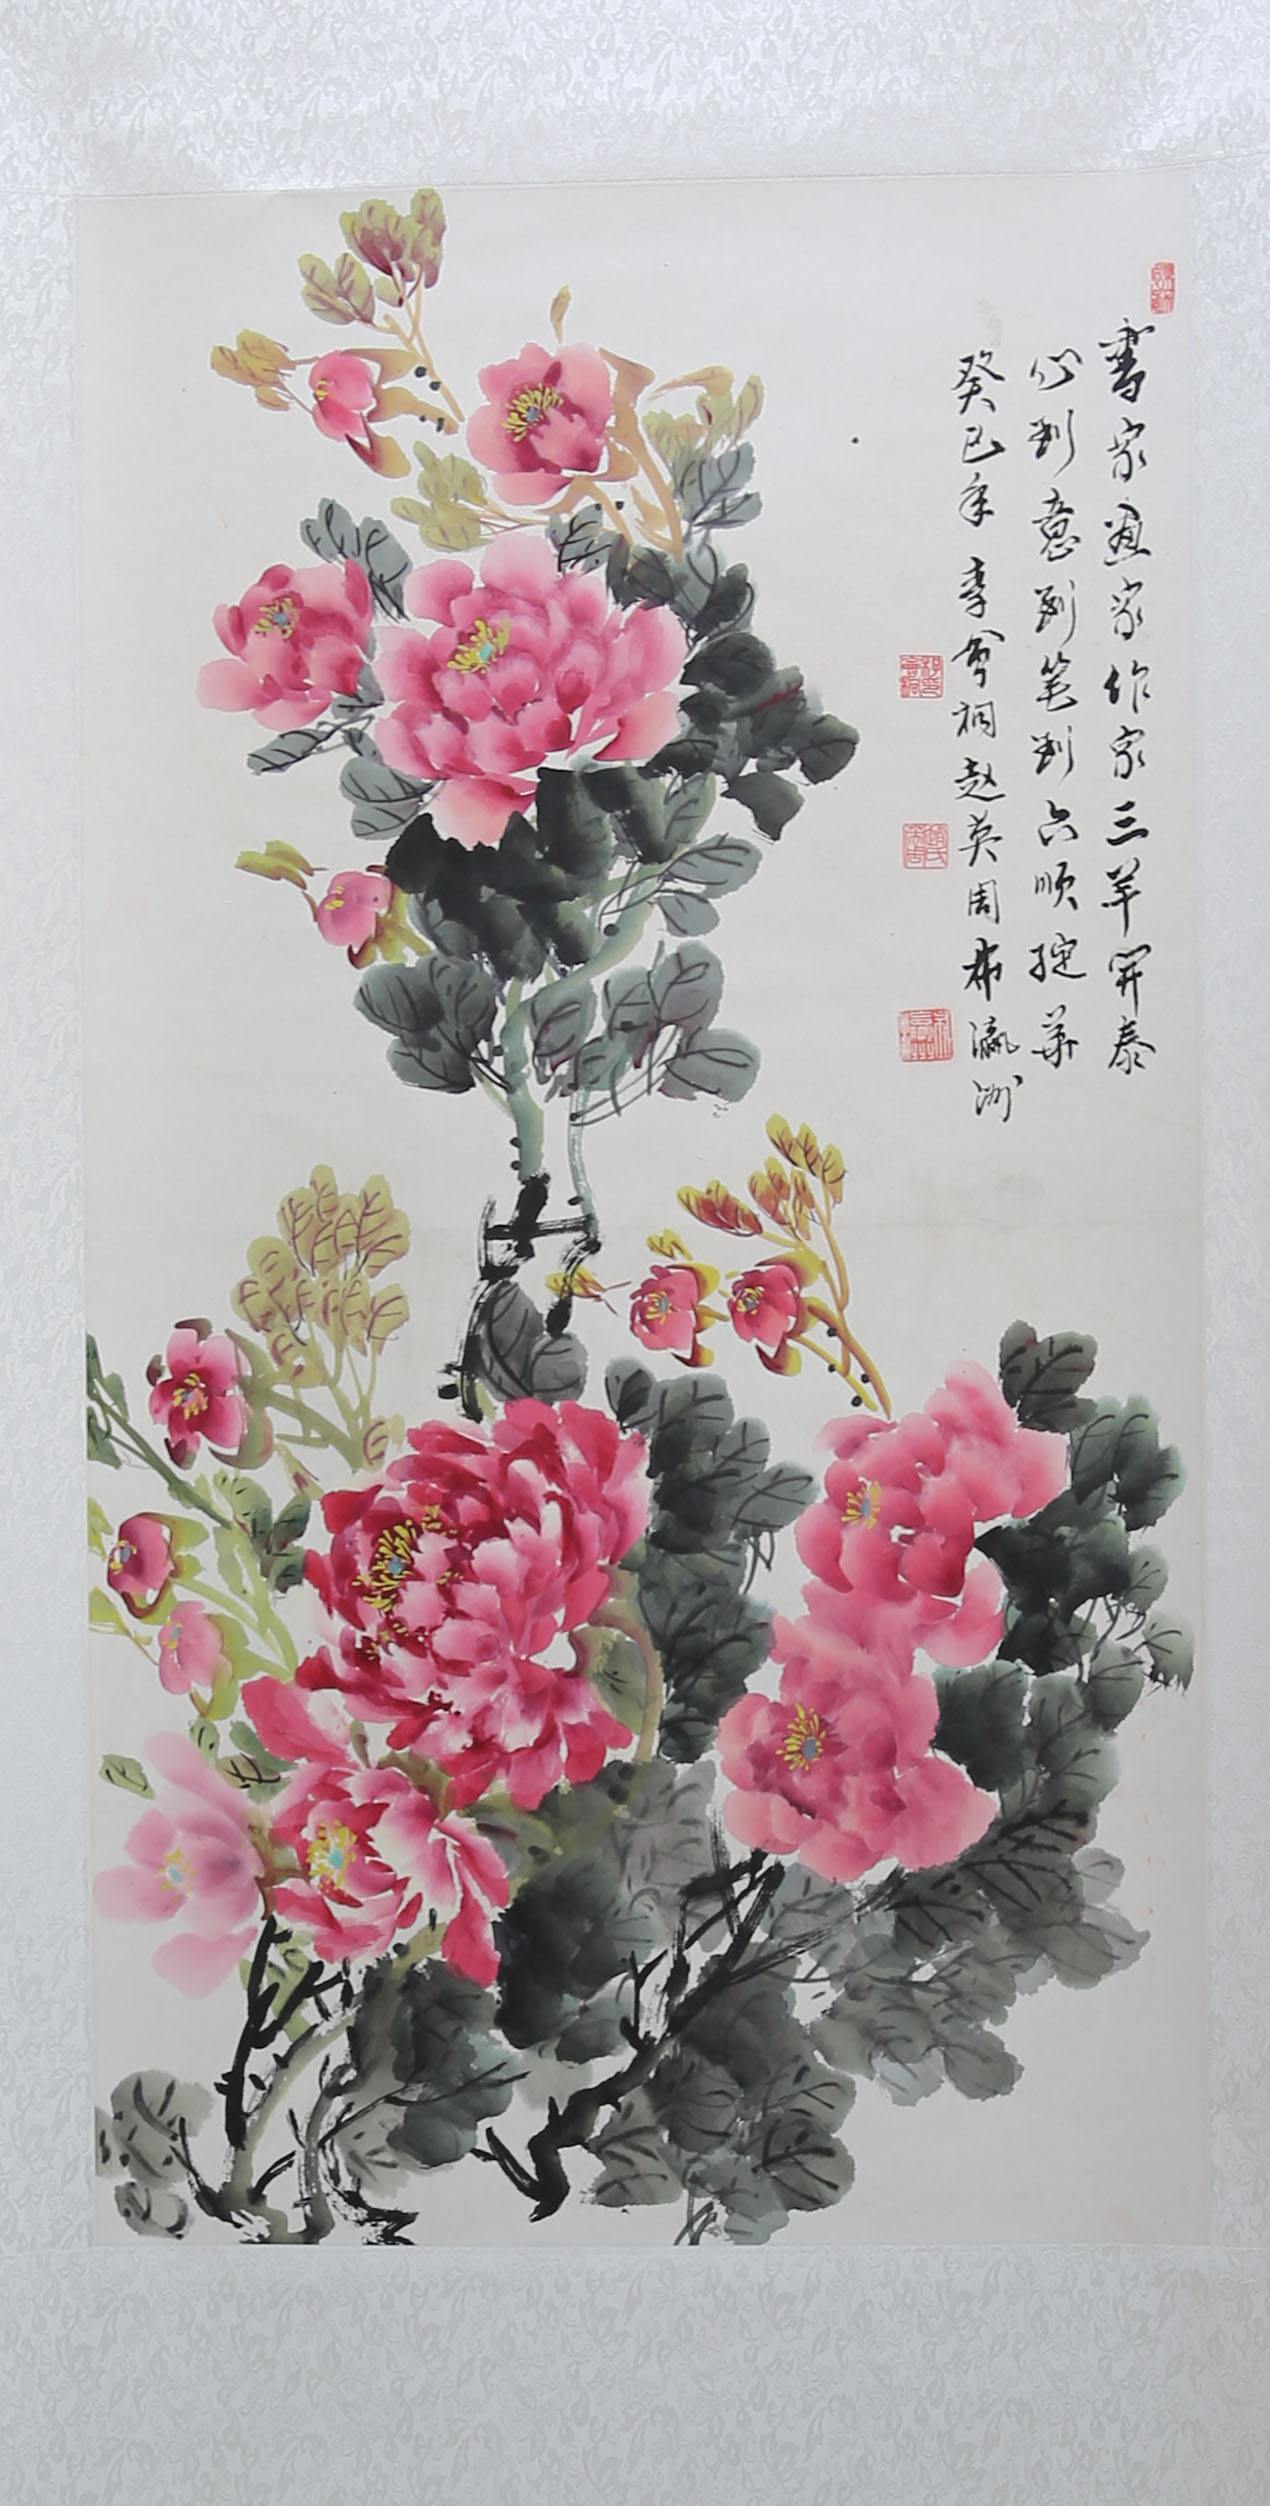 書家画家作家三羊開泰
心到意到笔到六順绽華
癸巳年李會桐赵英周布瀛洲